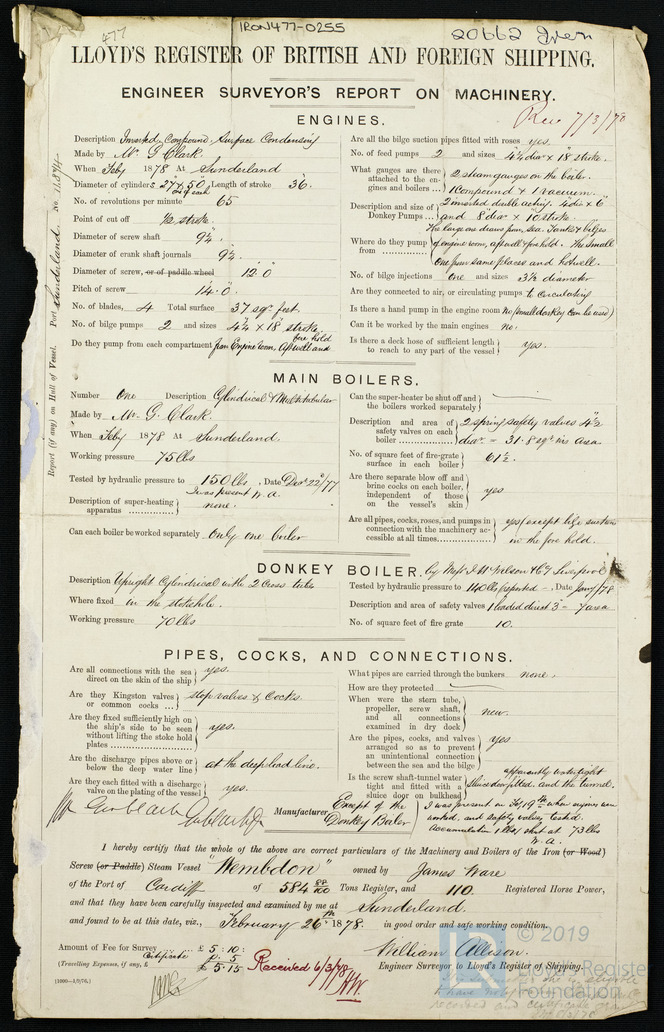 477
IRON477-0255
20662 Iron
LLOYD'S REGISTER OF BRITISH AND FOREIGN SHIPPING.
ENGINEER SURVEYOR'S REPORT ON MACHINERY.
Rec 7/3/78
ENGINES.
Description Inverted, Compound, Surface Condensing
Made by Mr. G. Clark.
When Feby 1878 At Sunderland
Diameter of cylinders 27 & 50 Length of stroke 36.
No. of revolutions per minute 65
Point of cut off 1/2 stroke.
Diameter of screw shaft 9 1/4.
Diameter of crank shaft journals 9 1/2.
Diameter of screw, or of paddle wheel 12.0
Pitch of screw 14.0.
No. of blades, 4 Total surface 37 sqr feet.
No. of bilge pumps 2 and sizes 4 1/4 x 18" stroke.
Do they pump from each compartment from Engine room, Aftwell and fore hold
Are all the bilge suction pipes fitted with roses yes.
No. of feed pumps 2 and sizes 4 1/4 dia x 18" stroke.
What gauges are there attached to the engines and boilers ... 2 steam gauges on the boiler. 1 Compound & 1 vacuum.
Description and size of Donkey Pumps ... 2 inverted double acting. 4 dia x 6" and 8 dia x 10 stroke.
Where do they pump from The large one draws from, sea, tanks & bilges of engine room, aftwell & fore hold. The small one from same places and hotwell.
No. of bilge injections one and sizes 3 1/2 diameter
Are they connected to air, or circulating pumps to circulating
Is there a hand pump in the engine room no (small donkey can be used)
Can it be worked by the main engines no.
Is there a deck hose of sufficient length to reach to any part of the vessel yes.
Report (if any) on Hull of Vessel. Port Sunderland No.
MAIN BOILERS.
Number one Description Cylindrical & Multitubular
Made by Mr. G. Clark.
When Feby 1878 At Sunderland.
Working pressure 75 lbs
Tested by hydraulic pressure to 150 lbs, Date Decr 22/77
I was present W.A.
Description of super-heating apparatus none.
Can each boiler be worked separately only one boiler
Can the super-heater be shut off and the boilers worked separately
Description and area of safety valves on each boiler 2 spring safety valves 4 1/2 diar = 31.8 sqr ins area
No. of square feet of fire-grate surface in each boiler 61 1/2.
Are there separate blow off and brine cocks on each boiler, independent of those on the vessel's skin yes
Are all pipes, cocks, roses, and pumps in connection with the machinery accessible at all times yes, except bilge suction in the fore hold.
DONKEY BOILER. by Messrs J. H. Wilson & Co, Liverpool
Description Upright Cylindrical with 2 Cross tubes
Where fixed in the stokehole.
Working pressure 70 lbs
Tested by hydraulic pressure to 140 lbs (reported), Date Jany/78
Description and area of safety valves 1 loaded direct 3 - 7 area
No. of square feet of fire grate 10.
PIPES, COCKS, AND CONNECTIONS.
Are all connections with the sea direct on the skin of the ship yes.
Are they Kingston valves or common cocks ... stop valves & Cocks.
Are they fixed sufficiently high on the ship's side to be seen without lifting the stoke hold plates yes.
Are the discharge pipes above or below the deep water line at the deep load line.
Are they each fitted with a discharge valve on the plating of the vessel yes.
What pipes are carried through the bunkers none.
How are they protected
When were the stern tube, propeller, screw shaft, and all connections examined in dry dock new.
Are the pipes, cocks, and valves arranged so as to prevent an unintentional connection between the sea and the bilge yes
Is the screw shaft-tunnel water tight and fitted with a sluice door on bulkhead apparently watertight Sluice door fitted, and the tunnel.
Manufacturer Except of the Donkey Boiler
I was present on Feby 19th when engines were worked, and safety valves tested. Accumulation 1 lb/ shut at 73 lbs
W.A.
I hereby certify that the whole of the above are correct particulars of the Machinery and Boilers of the Iron (or Wood)
Screw (or Paddle) Steam Vessel "Wembdon" owned by James Ware
of the Port of Cardiff of 584 88/100 Tons Register, and 110. Registered Horse Power,
and that they have been carefully inspected and examined by me at Sunderland.
and found to be at this date, viz., February 26th 1878. in good order and safe working condition.
Amount of Fee for Survey ... £ 5:10:
Certificate 5
(Travelling Expenses, if any, £ £ 5.15
Received 6/3/78
William Allison.
Engineer Surveyor to Lloyd's Register of Shipping.
© 2019
Lloyd's Register
Foundation